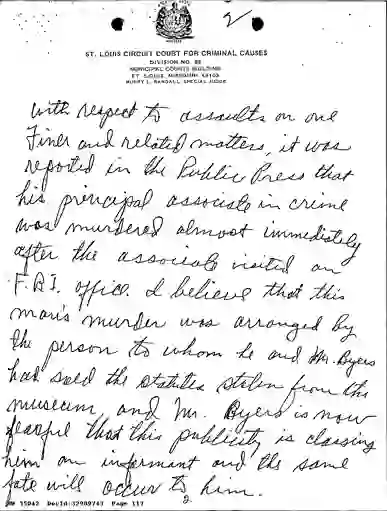 2
ST. LOUIS CIRCUIT COURT FOR CRIMINAL CAUSES
DIVISION NO.
MUNICIPAL COURTS BUILDING
ST. LOUIS, MISSOURI 63103
MURRY L. RANDALL SPECIAL JUDGE
with respect to assaults on one
Finer and related matters, it was
reported in the Public Press that
his principal associate in crime
was murdered almost immediately
after the associate visited an
F.B.I. office. I believe that this
man's murder was arranged by
the person to whom he and Mr. Byers
had sold the statutes stolen from the
museum, and Mr. Byers is now
fearful that this publicity is classing
him an informant and the same
fate will occur to him.
2
DocId:32989747 Page 117